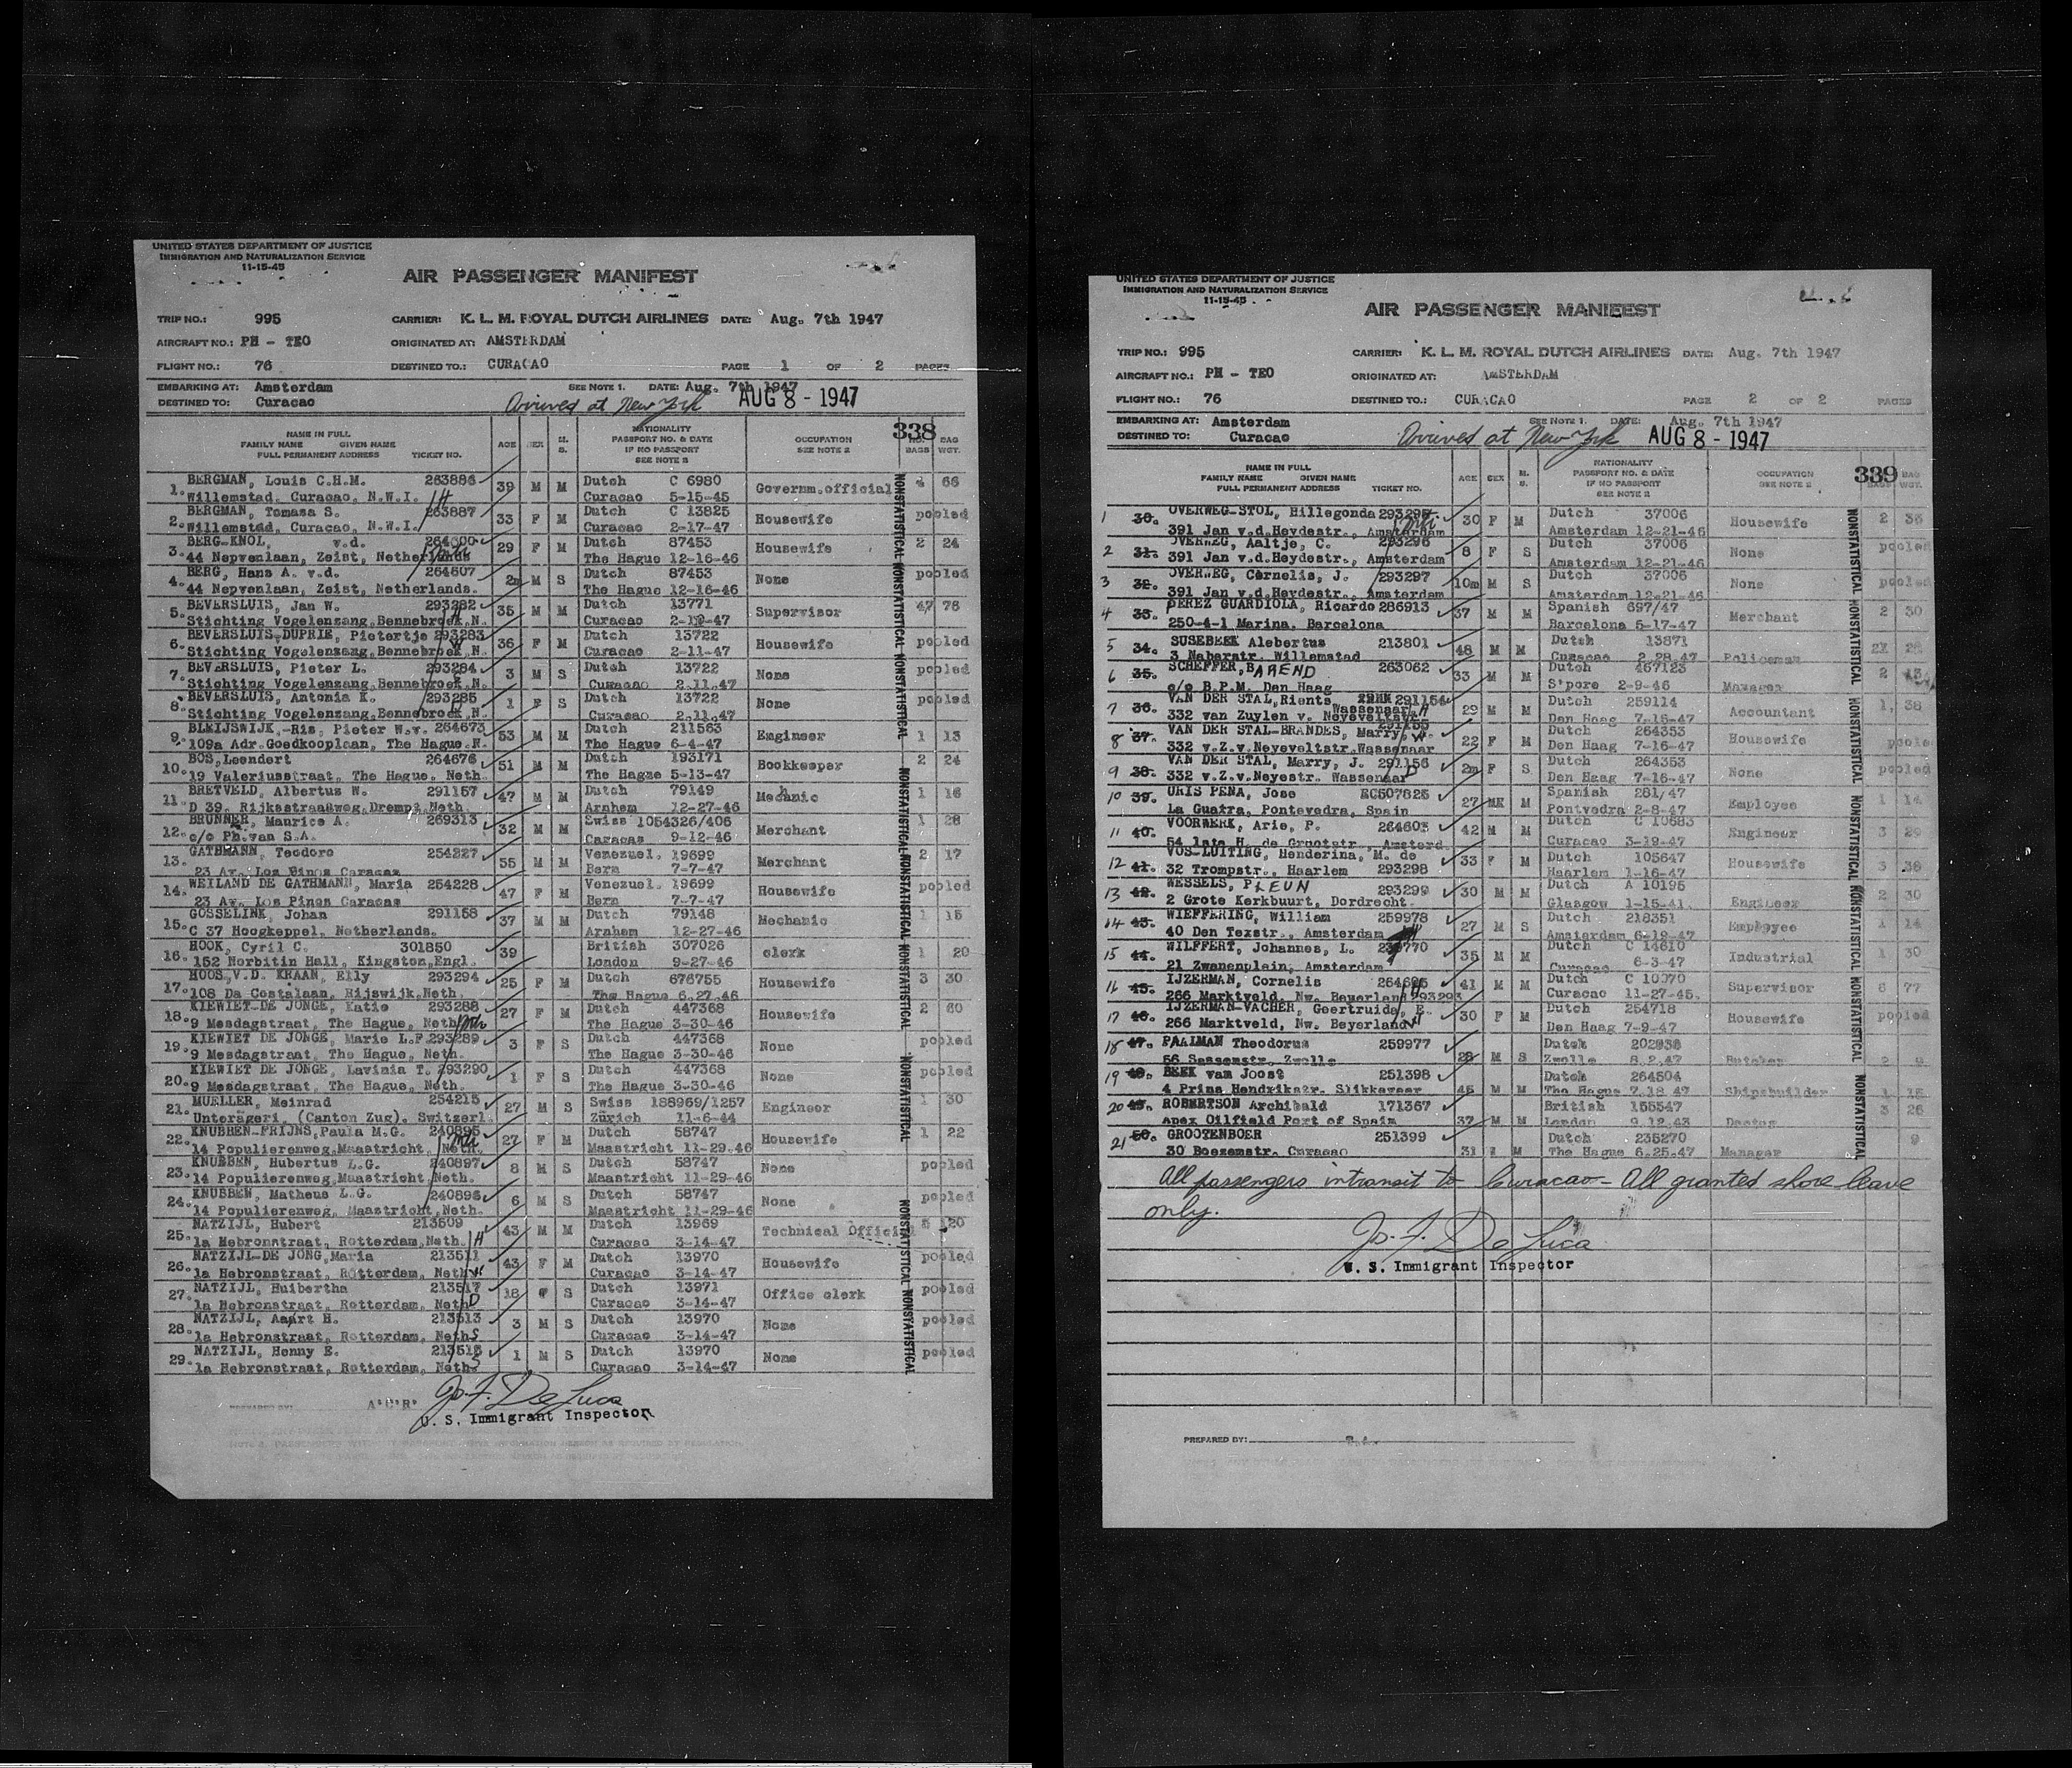 UNITED STATES DEPARTMENT OF JUSTICE
IMMIGRATION AND NATURALIZATION SERVICE
11-15-45
AIR PASSENGER MANIFEST
TRIP NO.: 995 CARRIER: K. L. M. ROYAL DUTCH AIRLINES DATE: Aug. 7th 1947
AIRCRAFT NO.: PH - TEO ORIGINATED AT: AMSTERDAM
FLIGHT NO.: 76 DESTINED TO.: CURACAO PAGE 1 OF 2 PAGES
EMBARKING AT: Amsterdam SEE NOTE 1. DATE: Aug. 7th 1947
DESTINED TO: Curacao Arrived at New York AUG 8 - 1947
NAME IN FULL
FAMILY NAME GIVEN NAME
FULL PERMANENT ADDRESS TICKET NO.
AGE SEX M. S.
NATIONALITY
PASSPORT NO. & DATE
IF NO PASSPORT
SEE NOTE 2
OCCUPATION
SEE NOTE 2
338
BAGS BAG WGT.
1. BERGMAN, Louis C.H.M. 263886 39 M M Dutch C 6980 Governm.official 4 66
Willemstad, Curacao, N.W.I. H Curacao 5-15-45
2. BERGMAN, Tomasa S. 263887 33 F M Dutch C 13825 Housewife pooled
Willemstad, Curacao, N.W.I. Curacao 2-17-47
3. BERG-KNOL, v.d. 264600 29 F M Dutch 87453 Housewife 2 24
44 Nepvenlaan, Zeist, Netherlands The Hague 12-16-46
4. BERG, Hans A. v.d. 264607 2m M S Dutch 87453 None pooled
44 Nepvenlaan, Zeist, Netherlands. The Hague 12-16-46
5. BEVERSLUIS, Jan W. 293282 35 M M Dutch 13771 Supervisor 47 76
Stichting Vogelenzang, Bennebroek, N. Curacao
6. BEVERSLUIS-DUPRIE, Pietertje 293283 36 F M Dutch 13722 Housewife pooled
Stichting Vogelenzang, Bennebroek, N. Curacao 2-11-47
7. BEVERSLUIS, Pieter L. 293284 3 M S Dutch 13722 None pooled
Stichting Vogelenzang, Bennebroek, N. Curacao 2.11.47
8. BEVERSLUIS, Antonia K. 293285 1 F S Dutch 13722 None pooled
Stichting Vogelenzang, Bennebroek, N. Curacao 2.11.47
9. BLEIJSWIJK,-Ris, Pieter W.v. 264673 53 M M Dutch 211563 Engineer 1 13
109a Adr.Goedkooplaan, The Hague, N. The Hague 6-4-47
10. BOS, Leendert 264676 51 M M Dutch 193171 Bookkeeper 2 24
19 Valeriusstraat, The Hague, Neth. The Hague 5-13-47
11. BRETVELD, Albertus W. 291157 47 M M Dutch 79149 Mechanic 1 16
D 39, Rijksstraatweg, Drempt, Neth. Arnhem 12-27-46
12. BRUNNER, Maurice A. 269313 32 M M Swiss 1054326/406 Merchant 1 28
c/o Ph.van S.A. Caracas 9-12-46
13. GATHMANN, Teodoro 254227 55 M M Venezuel. 19699 Merchant 2 17
23 Av. Los Pinos Caracas Bern 7-7-47
14. WEILAND DE GATHMANN, Maria 254228 47 F M Venezuel. 19699 Housewife pooled
23 Av. Los Pinos Caracas Bern 7-7-47
15. GOSSELINK, Johan 291158 37 M M Dutch 79148 Mechanic 1 15
C 37 Hoogkeppel, Netherlands. Arnhem 12-27-46
16. HOOK, Cyril C. 301850 39 British 307026 clerk 1 20
152 Norbitin Hall, Kingston, Engl. London 9-27-46
17. HOOS, V.D. KRAAN, Elly 293294 25 F M Dutch 676755 Housewife 3 30
108 Da Costalaan, Rijswijk, Neth. The Hague 6.27.46
18. KIEWIET-DE JONGE, Katie 293288 27 F M Dutch 447368 Housewife 2 60
9 Mesdagstraat, The Hague, Neth. The Hague 3-30-46
19. KIEWIET DE JONGE, Marie L.F. 293289 3 F S Dutch 447368 None pooled
9 Mesdagstraat, The Hague, Neth. The Hague 3-30-46
20. KIEWIET DE JONGE, Lavinia T. 293290 1 F S Dutch 447368 None pooled
9 Mesdagstraat, The Hague, Neth. The Hague 3-30-46
21. MUELLER, Meinrad 254215 27 M S Swiss 188969/1257 Engineer 1 30
Unterägeri (Canton Zug), Switzerl. Zürich 11-6-44
22. KNUBBEN-FRIJNS, Paula M.G. 240895 27 F M Dutch 58747 Housewife 1 22
14 Populierenweg, Maastricht, Neth. Maastricht 11-29-46
23. KNUBBEN, Hubertus L.G. 240897 8 M S Dutch 58747 None pooled
14 Populierenweg, Maastricht, Neth. Maastricht 11-29-46
24. KNUBBEN, Matheus L.G. 240896 6 M S Dutch 58747 None pooled
14 Populierenweg, Maastricht, Neth. Maastricht 11-29-46
25. NATZIJL, Hubert 213509 43 M M Dutch 13969 Technical Official 5 120
1a Hebronstraat, Rotterdam, Neth. H Curacao 3-14-47
26. NATZIJL-DE JONG, Maria 213511 43 F M Dutch 13970 Housewife pooled
1a Hebronstraat, Rotterdam, Neth. W Curacao 3-14-47
27. NATZIJL, Huibertha 213517 18 F S Dutch 13971 Office clerk pooled
1a Hebronstraat, Rotterdam, Neth. D Curacao 3-14-47
28. NATZIJL, Aaart H. 213513 3 M S Dutch 13970 None pooled
1a Hebronstraat, Rotterdam, Neth. S Curacao 3-14-47
29. NATZIJL, Henny E. 213515 1 M S Dutch 13970 None pooled
1a Hebronstraat, Rotterdam, Neth. S Curacao 3-14-47
NONSTATISTICAL NONSTATISTICAL NONSTATISTICAL NONSTATISTICAL NONSTATISTICAL NONSTATISTICAL
PREPARED BY: A.C.R. Jo. F. De Luca
U. S. Immigrant Inspector
UNITED STATES DEPARTMENT OF JUSTICE
IMMIGRATION AND NATURALIZATION SERVICE
11-15-45
AIR PASSENGER MANIFEST
TRIP NO.: 995 CARRIER: K. L. M. ROYAL DUTCH AIRLINES DATE: Aug. 7th 1947
AIRCRAFT NO.: PH - TEO ORIGINATED AT: AMSTERDAM
FLIGHT NO.: 76 DESTINED TO.: CURACAO PAGE 2 OF 2 PAGES
EMBARKING AT: Amsterdam SEE NOTE 1. DATE: Aug. 7th 1947
DESTINED TO: Curacao Arrived at New York AUG 8 - 1947
NAME IN FULL
FAMILY NAME GIVEN NAME
FULL PERMANENT ADDRESS TICKET NO.
AGE SEX M. S.
NATIONALITY
PASSPORT NO. & DATE
IF NO PASSPORT
SEE NOTE 2
OCCUPATION
SEE NOTE 2
339
BAGS BAG WGT.
1 30. OVERWEG-STOL, Hillegonda 293295 30 F M Dutch 37006 Housewife 2 35
391 Jan v.d.Heydestr., Amsterdam Amsterdam 12-21-46
2 31. OVERWEG, Aaltje, C. 293296 8 F S Dutch 37006 None pooled
391 Jan v.d.Heydestr., Amsterdam Amsterdam 12-21-46
3 32. OVERWEG, Cornelis, J. 293297 10m M S Dutch 37006 None pooled
391 Jan v.d.Heydestr., Amsterdam Amsterdam 12-21-46
4 33. PEREZ GUARDIOLA, Ricardo 286913 37 M M Spanish 697/47 Merchant 2 30
250-4-1 Marina, Barcelona Barcelona 5-17-47
5 34. SUSEBEEK Alebertus 213801 48 M M Dutch 13871 Policeman
3 Naberstr. Willemstad Curacao 2.28.47
6 35. SCHEFFER, BAREND 263062 33 M M Dutch 467123 Manager 2
c/o B.P.M. Den Haag S'pore 2-9-46
7 36. VAN DER STAL, Rients 291154 29 M M Dutch 259114 Accountant 1 38
332 van Zuylen v. Neyeveltstr. Wassenaar H Den Haag 7-15-47
8 37. VAN DER STAL-BRANDES, Marry, 291155 22 F M Dutch 264353 Housewife pooled
332 v.Z.v.Neyeveltstr. Wassenaar Den Haag 7-16-47
9 38. VAN DER STAL, Marry, J. 291156 2m F S Dutch 264353 None pooled
332 v.Z.v.Neyestr. Wassenaar D Den Haag 7-16-47
10 39. URIS PENA, Jose EC507825 27 M M Spanish 281/47 Employee 1 14
La Guatra, Pontevedra, Spain Pontvedra 2-8-47
11 40. VOORWERK, Arie, P. 264603 42 M M Dutch C 10583 Engineer 3 29
54 1ste H. de Grootstr., Amsterd. Curacao 3-19-47
12 41. VOS-LUITING, Henderina, M. de 33 F M Dutch 105647 Housewife 3 36
32 Trompstr., Haarlem 293298 Haarlem 1-16-47
13 42. WESSELS, PLEUN 293299 30 M M Dutch A 10195 Engineer 2 30
2 Grote Kerkbuurt, Dordrecht. Glasgow 1-15-41.
14 43. WIEFFERING, William 259978 27 M S Dutch 218351 Employee 1 14
40 Den Texstr., Amsterdam Amsterdam 6-12-47
15 44. WILFFERT, Johannes, L. 35 M M Dutch C 14610 Industrial 1 30
21 Zwanenplein, Amsterdam Curacao 6-3-47
16 45. IJZERMAN, Cornelis 41 M M Dutch C 10070 Supervisor 6 77
266 Marktveld, Nw. Beyerland H 293293 Curacao 11-27-45.
17 46. IJZERMAN-VACHER, Geertruide, E. 30 F M Dutch 254718 Housewife pooled
266 Marktveld, Nw. Beyerland W Den Haag 7-9-47
18 47. PAALMAN Theodorus 259977 28 M S Dutch 202938 Butcher
56 Sassenstr. Zwolle Zwolle 8.2.47
19 48. BEEK van Joost 251398 46 M M Dutch 264504 Shipsbuilder 1 15
4 Prins Hendrikstr. Slikkeveer The Hague 7.18.47
20 49. ROBERTSON Archibald 171367 37 M M British 155547 Doctor 3 26
Apex Oilfield Port of Spain London 9.12.43
21 50. GROOTENBOER 251399 31 M Dutch 235270 Manager 9
30 Boezemstr. Curacao The Hague 6.25.47
NONSTATISTICAL NONSTATISTICAL NONSTATISTICAL NONSTATISTICAL NONSTATISTICAL
All passengers intransit to Curacao - All granted shore leave
only.
Jo. F. De Luca
U. S. Immigrant Inspector
PREPARED BY: